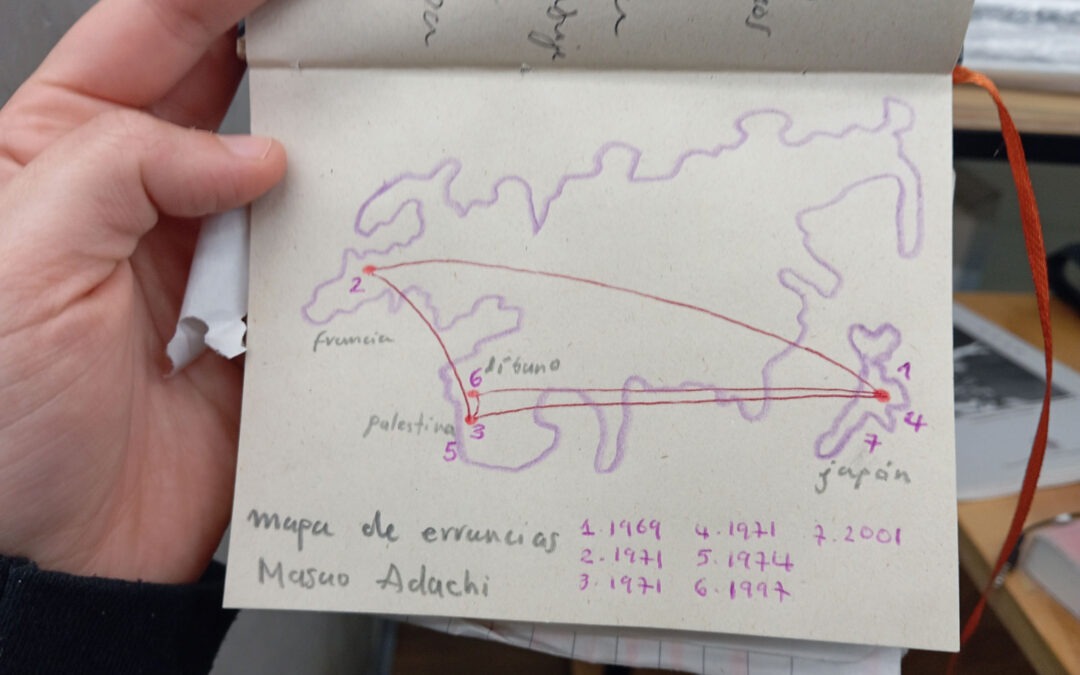 2
francia
6 líbano
palestina 3
5
1
4
7
japón
mapa de errancias
Masao Adachi
1.1969 4.1971 7.2001
2.1971 5.1974
3.1971 6.1997